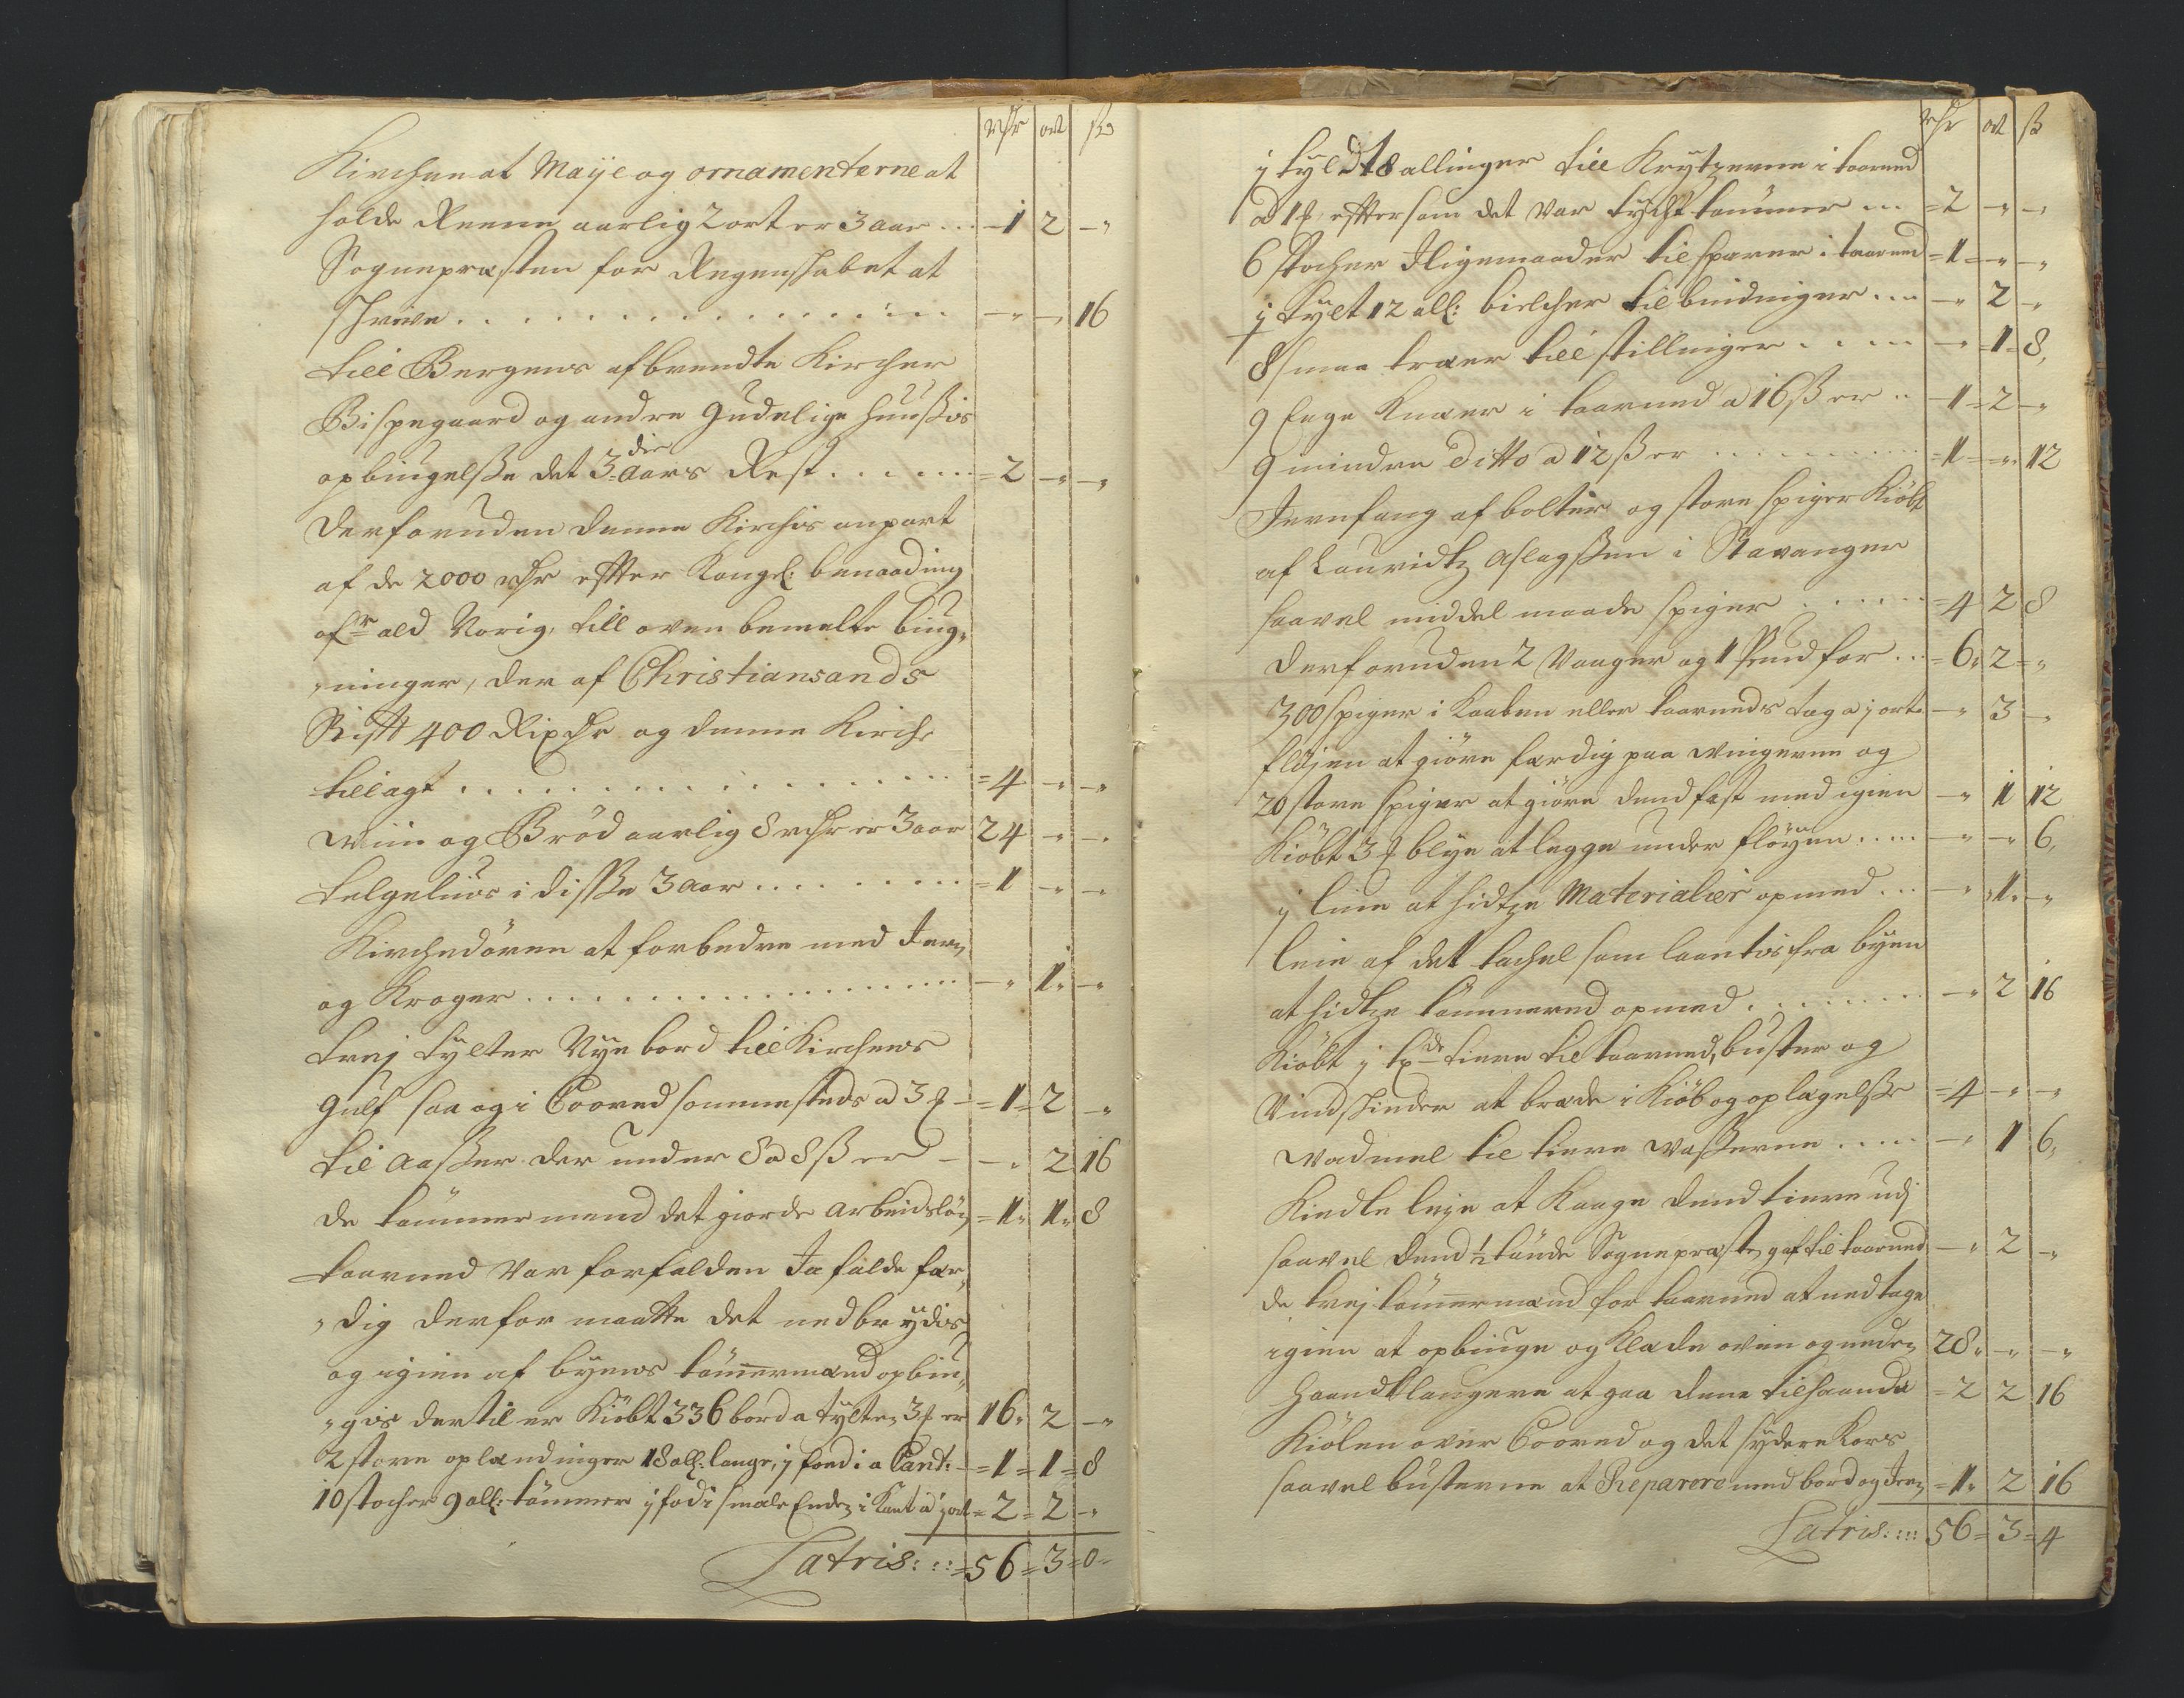 rdr ort ß
Kirchen at Maÿe og ornamenterne at
holde Reene aarlig 2 ort er 3 aar ... - 1 2 -"
Sognepræsten for Regenskabet at
skrive . . . . . . . . . . . . . . . -" -" 16
till Bergens afbrendte Kircher
Bispegaard og andre Gudelige huußis
opbÿgelße det 3die aars Rest . . . . . . = 2 -" -"
Derforuden denne Kirchis anpart
af de 2000 rdr effter Kongl: benaading
af ald Vorig, till oven bemelte bÿg„
„ninger, der af Christiansands
Stift 400 Rixdr og denne Kirche
tillagt . . . . . . . . . . . . . . = 4 -" -"
Wiin og Brød aarlig 8 rdr er 3 aar 24 -" -"
telgeliuus i disße 3 aar . . . . . . . . = 1 -" -"
Kirchedøren at forbedre med Jern
og Kroger . . . . . . . . . . . . . . . -" 1" -"
trej tÿlter Nÿe bord till Kirchens
Gulf saa og i Coored sommesteds a 3 ort = 1 = 2 -"
til aaßer der under 8 a 8 ß er - -" 2 16
de tømmermend det giorde arbeidsløn = 1" 1" 8
taarned var forfalden Ja falde fær„
„dig derfor maatte det nedbrÿdis
og igien af bÿens tømmermænd opbÿ„
„gis dertil er Kiøbt 336 bord a tÿlten 3 ort er 16" 2 -"
2 store oplændinger 18 all: lange, j foed i a Cant: = 1 = 1 = 8
10 stocher 9 all: tømmer j fod i smale Enden i Kant a j ort = 2 = 2 -"
Latris: ::: = 56 = 3 = 0 -
rdr ort ß
j tÿldt 8 allinger till Krÿtzerne i taarned
a 1 ort, effter som det var tÿcht tømmer ... = 2 -" -"
6 stocher Jligemaader til sparer i taarned = 1 = -" -"
j tÿlt 12 all: bielcher til bindinger .... -" 2 -"
8 smaa træer till stillinger . . . . -" = 1 = 8,
9 Enge Knæer i taarned a 16 ß er .. - 1 = 2 -"
9 mindre ditto a 12 ß er . . . . . . . . . = 1 = -" 12
Jernfang af bolter og store spiger Kiøbt
af Lauridtz Aslagßen i Stavanger
saavel middel maade spiger . . . . . . = 4 2 8
Derforuden 2 Vaager og 1 Pund for ... = 6" 2 = "
300 spiger i Kaaben eller taarneds tag a j ort - -" 3 -"
fløjen at giøre færdig paa wingerne og
20 store spiger at giøre dend fast med igien -" 1 12
Kiøbt 3 ℔ blye at legge under fløÿen ..... -" -" 6,
j line at hidtze Materialier op med ... -" "1" -"
leie af det tachel som laantis fra bÿen
at hidtze tømmered op med . . . . . . . . -" 2 16
Kiøbt j tønde tiere til taarned, buster og
Vindskieder at bræde i Kiøb og oplagelße = 4 -" -"
Wadmel til tiere Waßerne ..... -" 1 6,
Kiedle leje at Kaage dend tiere udj
saavel dend ½ tønde Sognepræsten gaf til taarned -" 2 -"
de trej tømmermænd for taarned at nedtage
igien at opbÿge og Klæde oven og neden 28" -" -"
Haandtlangere at gaa dem tilhaande = 2 2 16
Kiølen over Coored og det sÿdere Kors
saavel busterne at Reparere med bord og Jern = 1" 2 16
Latris: :::: 56 = 3 = 4